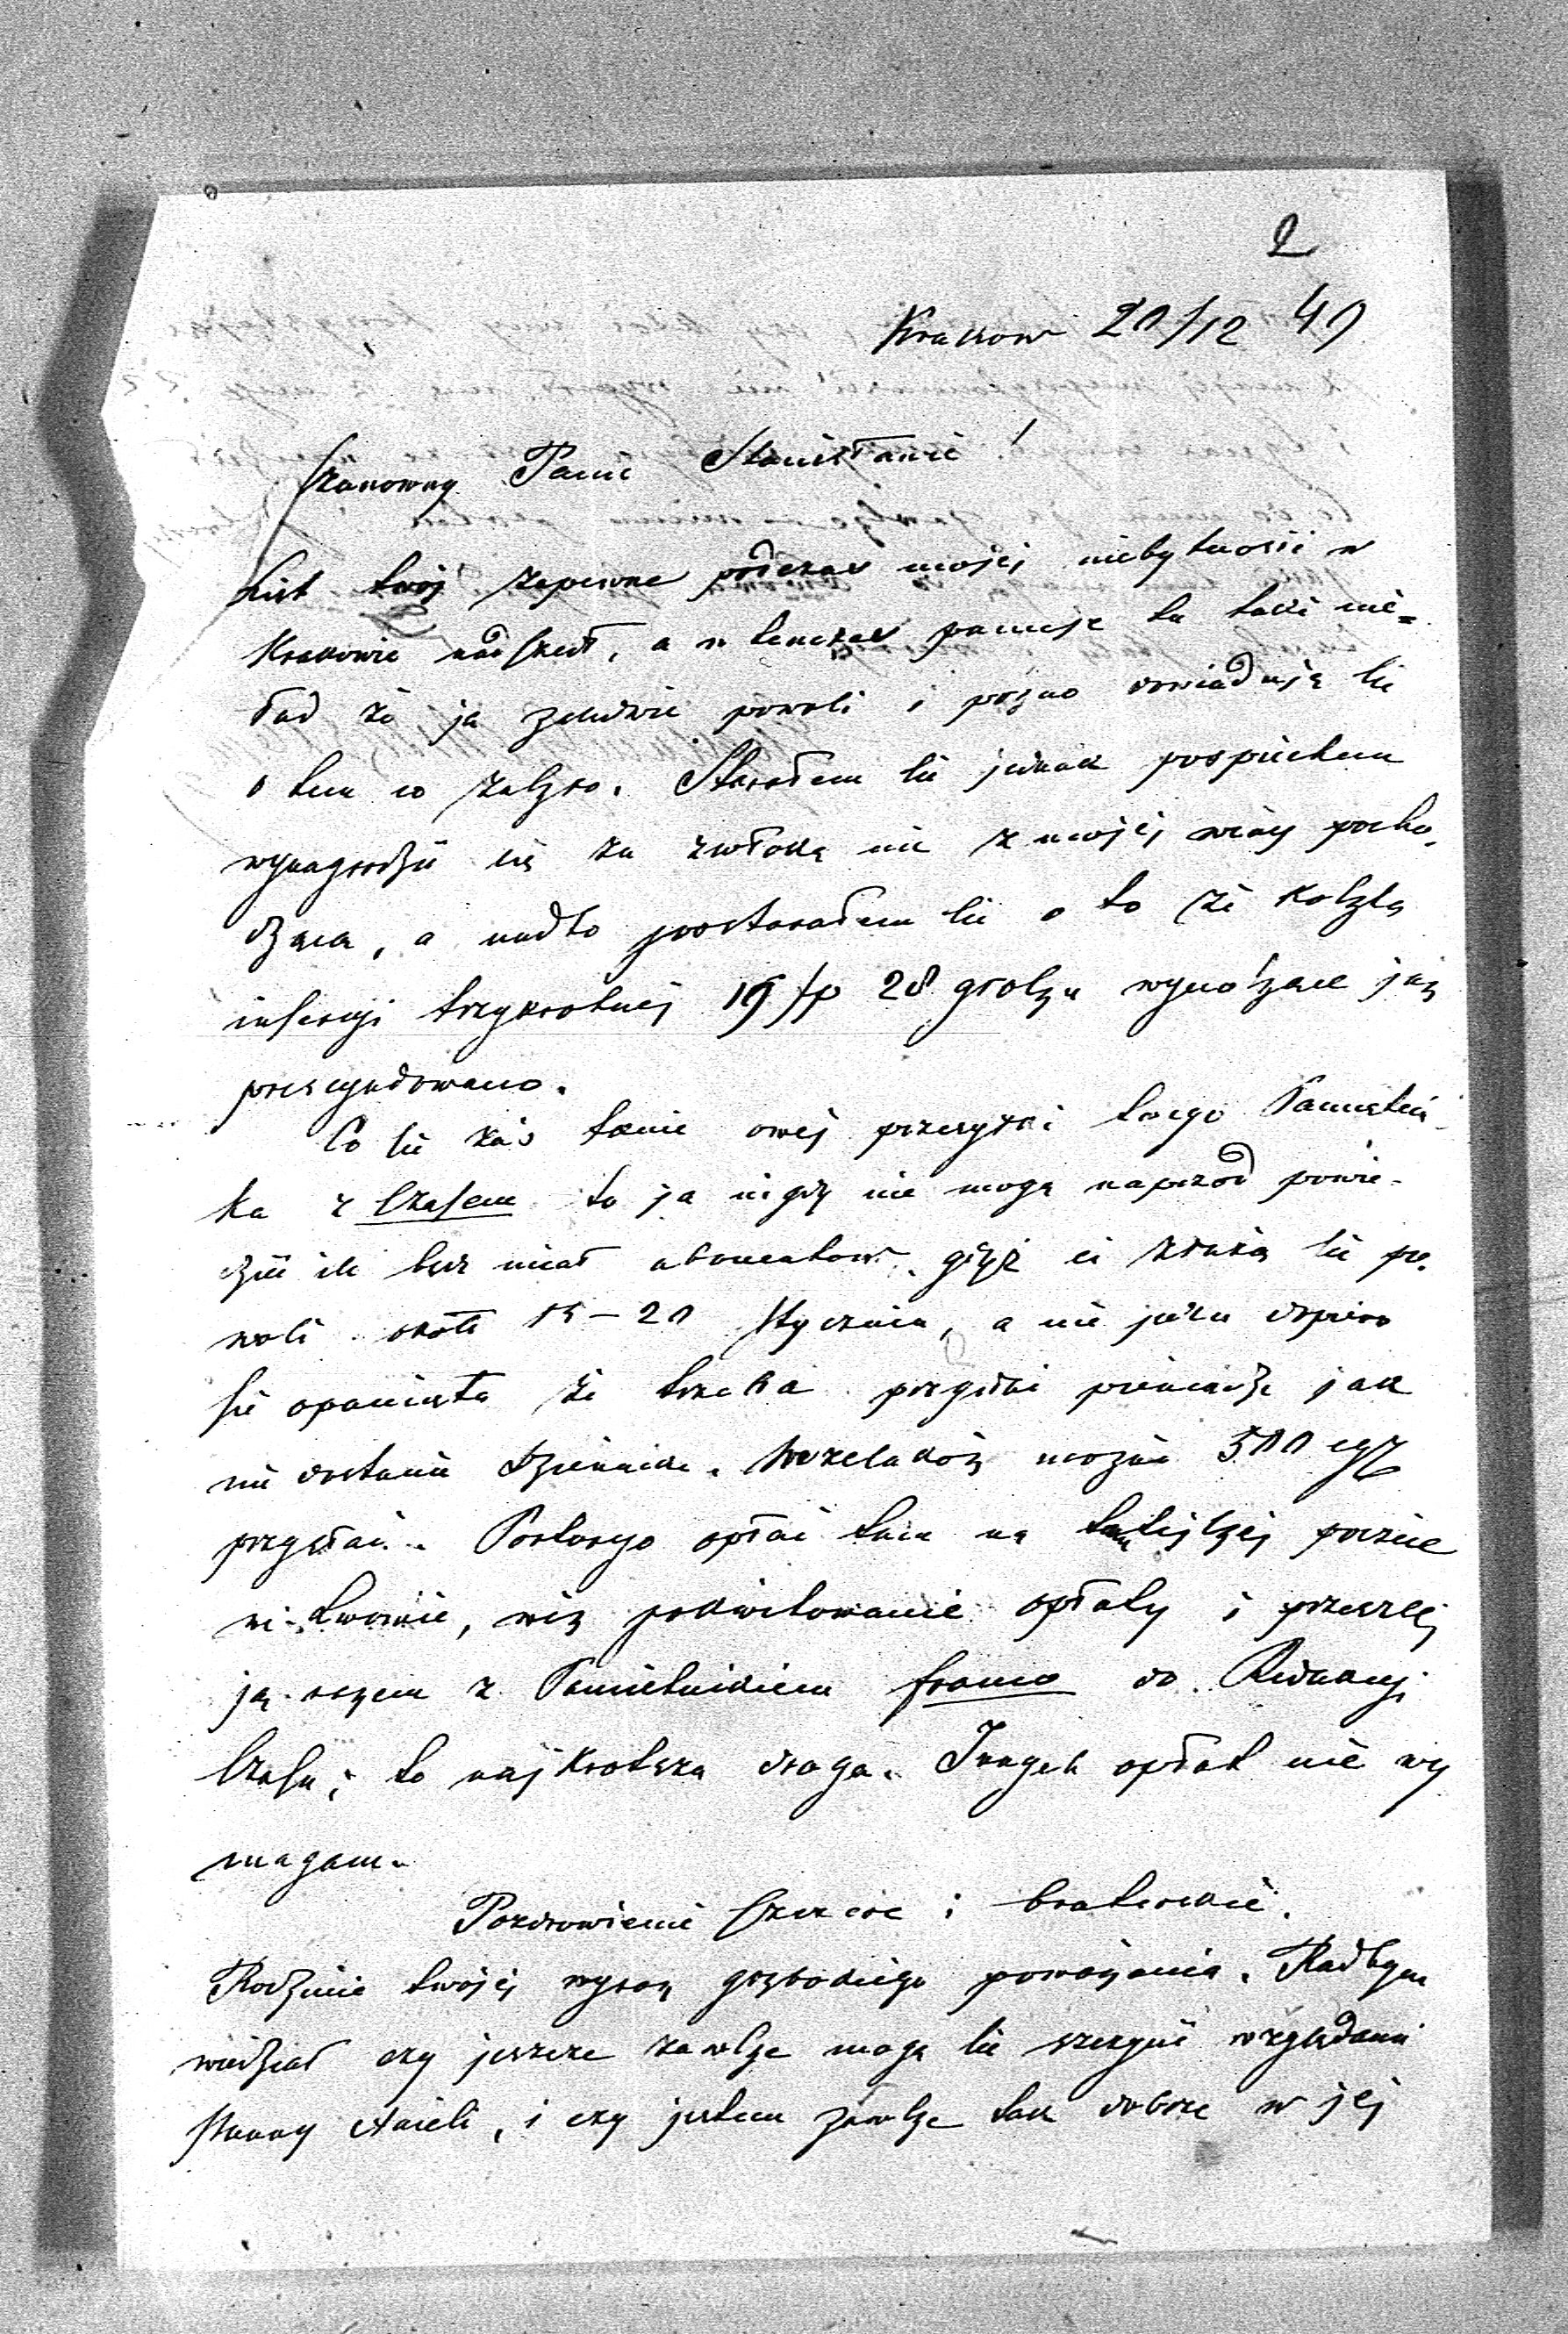 2
Krakow 20/12 49
Szanowny Panie Stanisławie!
List twój zapewne podczas mojej niebytnosci w
Krakowie nadszedł, a w tenczas panuje tu taki nie=
ład że ja zaledwie powoli i pozno dowiaduję sie
o tem co zaszło. Starałem sie jednak pospiechem
wynagrodzić cię za zwłokę nie z mojej winy pocho-
dzącą, a nadto postarałem sie o to że koszta
insercyi trzykrotnej 19 złp 28 groszy wynoszące już
Co sie zaś tknie owej przesyłki twego Pamiętni-
ka z Czasem to ja nigdy nie mogę naprzod powie-
dzieć ile bede miał abonentow, gdyż ci zbiorą sie po-
woli około 15–20 Stycznia, a nie jeden dopiero
sie opamięta że trzeba przysłać pieniądze jak
nie dostanie dziennika. Wszelakoż możesz 500 egz
przysłać. Portoryo opłać tam na tamtejszej poczcie
we Lwowie, weź pokwitowanie opłaty i przeszlej
ją razem z Pamietnikiem franco do Redakcyi
Czasu; to najkrotsza droga. Innych opłat nie wy
magam.
Pozdrowienie szczere i braterskie.
Rodzinie twojej wyraz głębokiego poważania. Radbym
wiedział czy jeszcze zawsze mogę sie szczycić względami
Panny Anieli, i czy jestem zawsze tak dobrze w jej